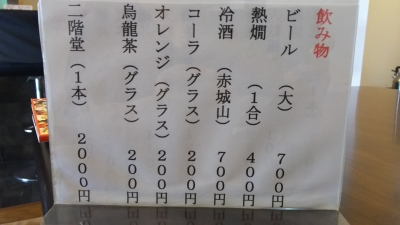 飲み物
ビール（大）７００円
熱燗（１合）４００円
冷酒（赤城山）７００円
コーラ（グラス）２００円
オレンジ（グラス）２００円
烏龍茶（グラス）２００円
二階堂（１本）２０００円